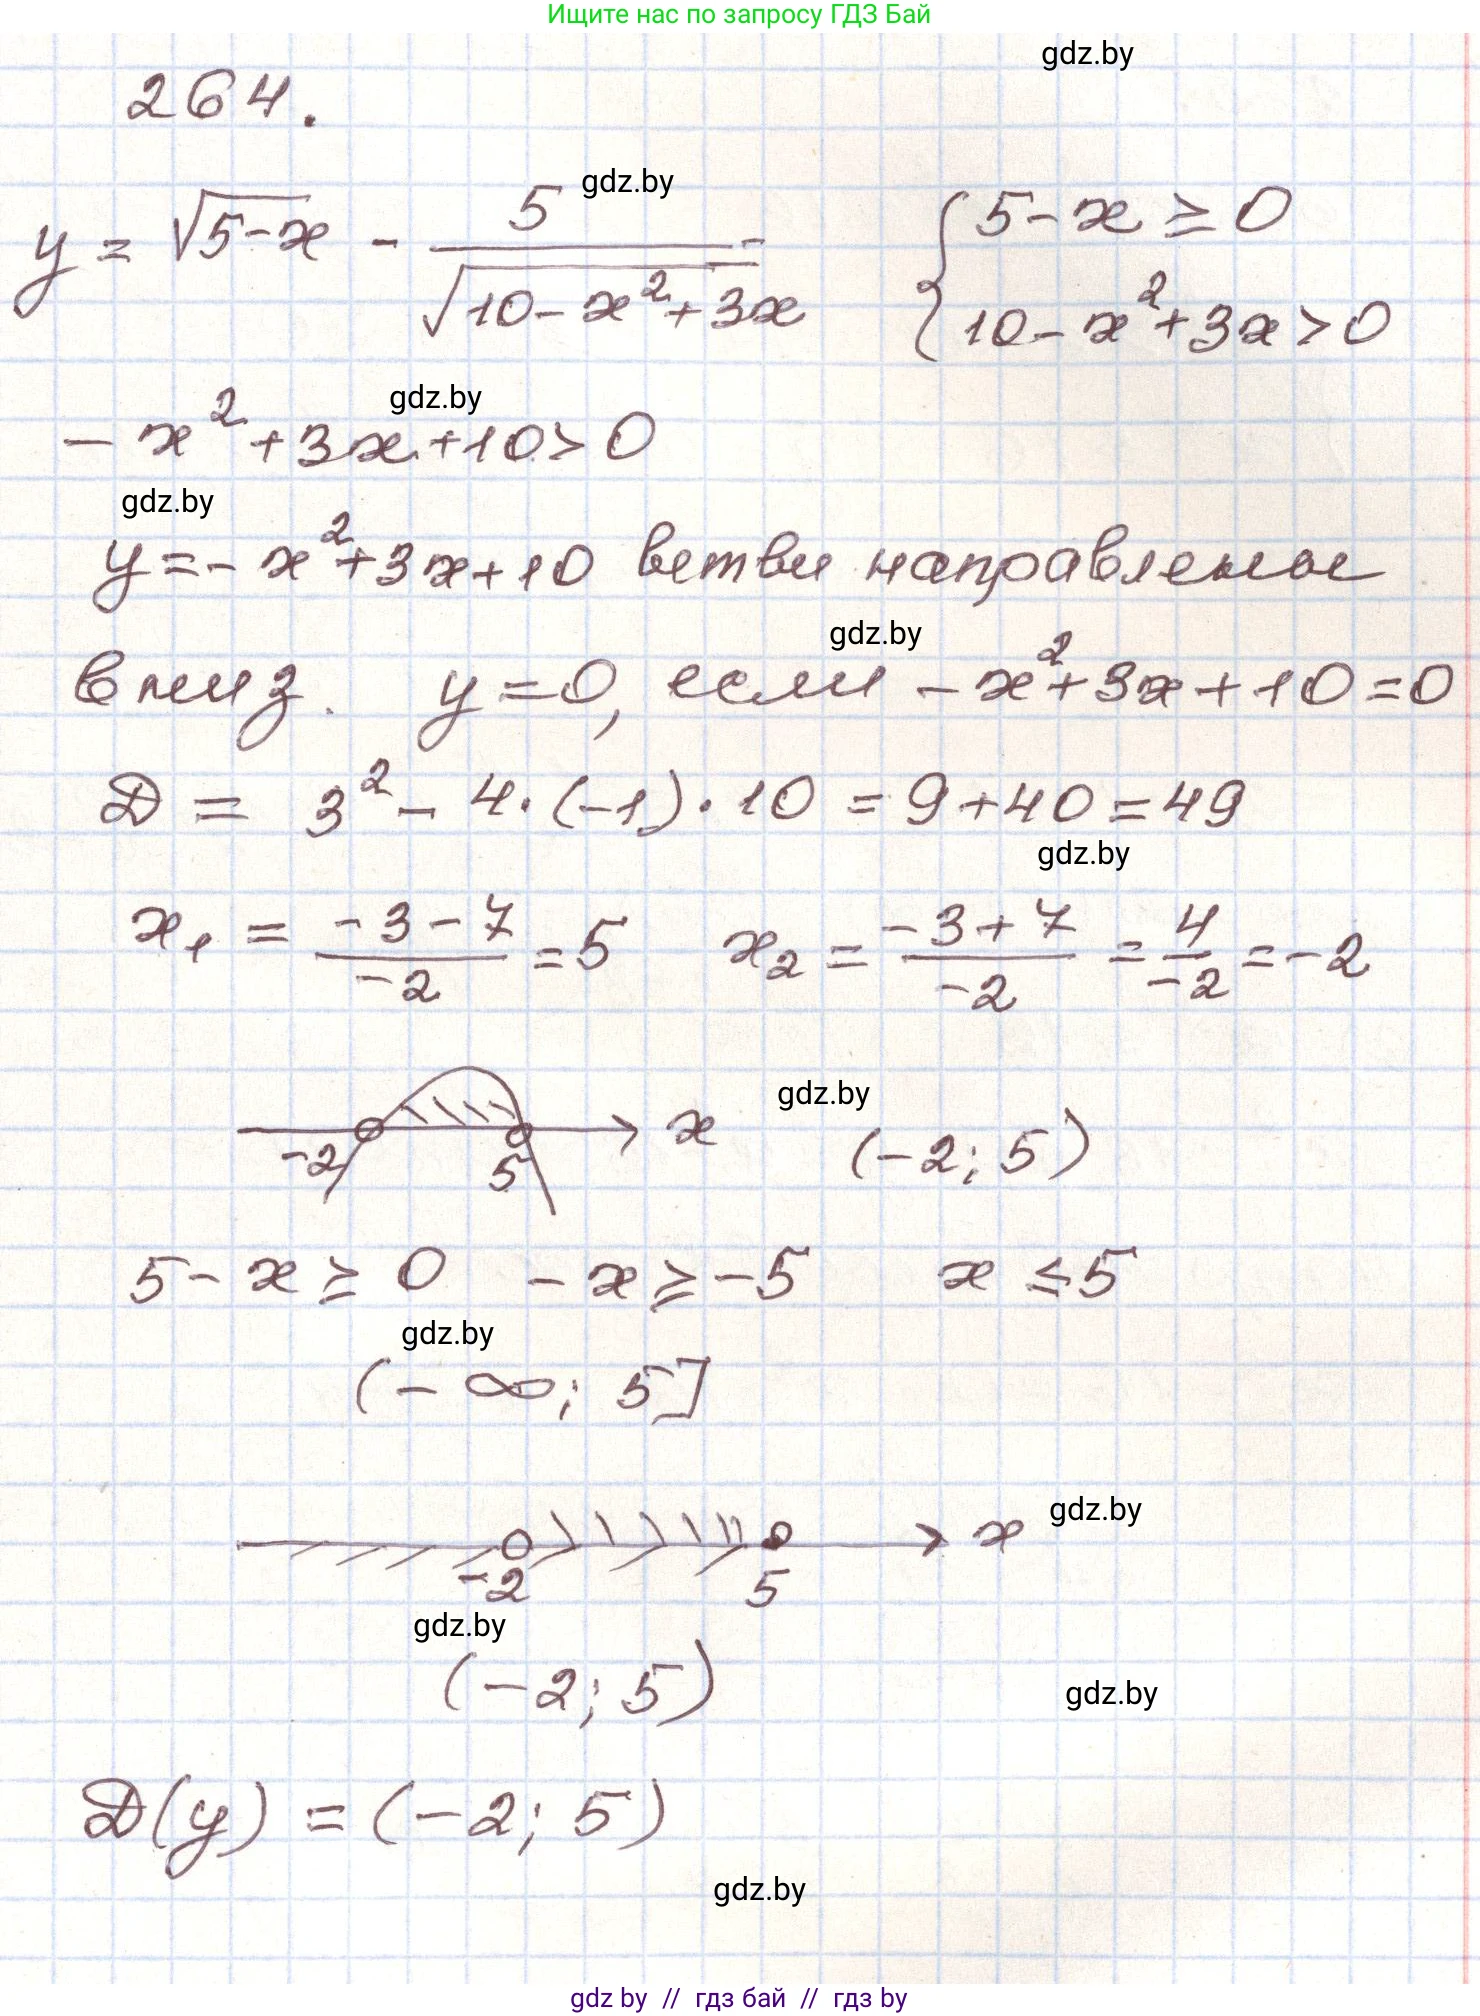 Ищите нас по запросу ГДЗ Бай
gdz.by
264.
gdz.by
y = √(5-x) - 5/√(10-x²+3x) =
{5-x ≥ 0
10-x²+3x > 0
gdz.by
-x²+3x+10>0
gdz.by
y=-x²+3x+10 ветви направлены
gdz.by
вниз. y=0, если -x²+3x+10=0
D = 3²-4·(-1)·10 = 9+40=49
gdz.by
x₁ = (-3-7)/(-2) = 5 x₂ = (-3+7)/(-2) = 4/(-2) = -2
gdz.by
x
-2 5 (-2; 5)
5-x ≥ 0 -x ≥ -5 x ≤ 5
gdz.by
(-∞; 5]
gdz.by
x
-2 5
gdz.by
(-2; 5)
gdz.by
D(y) = (-2; 5)
gdz.by
gdz by // гдз бай // гдз by